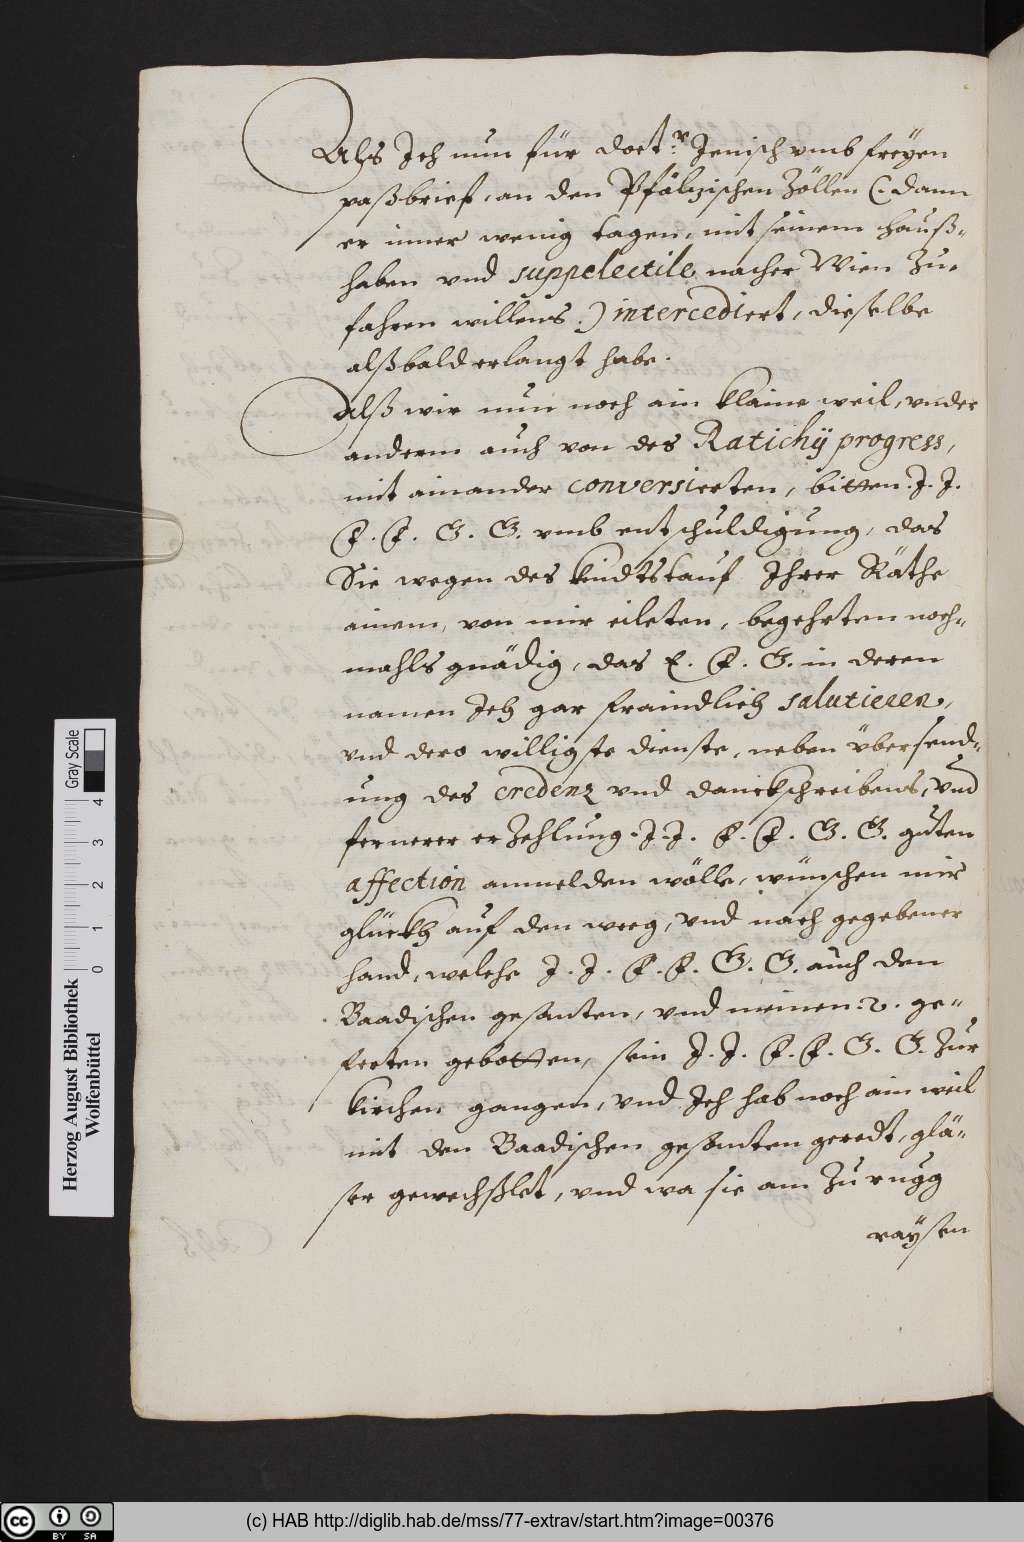 Alß Ich nun für doct:r Jenisch vmb freÿen
paßbrief, an den Pfälzischen Zöllen (: dann
er inner wenig tagen, mit seinem hauß-
haben vnd suppelectile, nacher Wien Zue
fahren willens :) intercediert, dieselbe
alßbald erlangt habe.
Alß wir nun noch ain klaine weil, vnder
anderm auch von des Ratichÿ progress,
mit ainander conversierten, bitten J. J.
F. F. G. G. vmb entschuldigung, das
Sie wegen des kindtstauf Ihrer Räthe
ainem, von mir eileten, begehrten noch-
mahls gnädig, das E. F. G. in deren
namen Ich gar fraindlich salutieren,
vnd dero willigste dienste, neben übersend-
ung des credenz vnd danckschreibens, vnd
fernerer erZehlung J. J. F. F. G. G. guten
affection anmelden wölle, wünschen mir
glückh auf den weeg, vnd nach gegebener
hand, welche J. J. F. F. G. G. auch den
Baadischen gesanten, vnd meinen 2. ge-
ferten gebotten, sein J. J. F. F. G. G. Zur
kirchen gangen, vnd Ich hab noch ain weil
mit den Baadischen gesanten geredt, glä-
ser gewechßlet, vnd wa sie am Zurugg
raÿsen
Herzog August Bibliothek
Wolfenbüttel
Gray Scale
0 1 2 3 4
cc BY SA
(c) HAB http://diglib.hab.de/mss/77-extrav/start.htm?image=00376